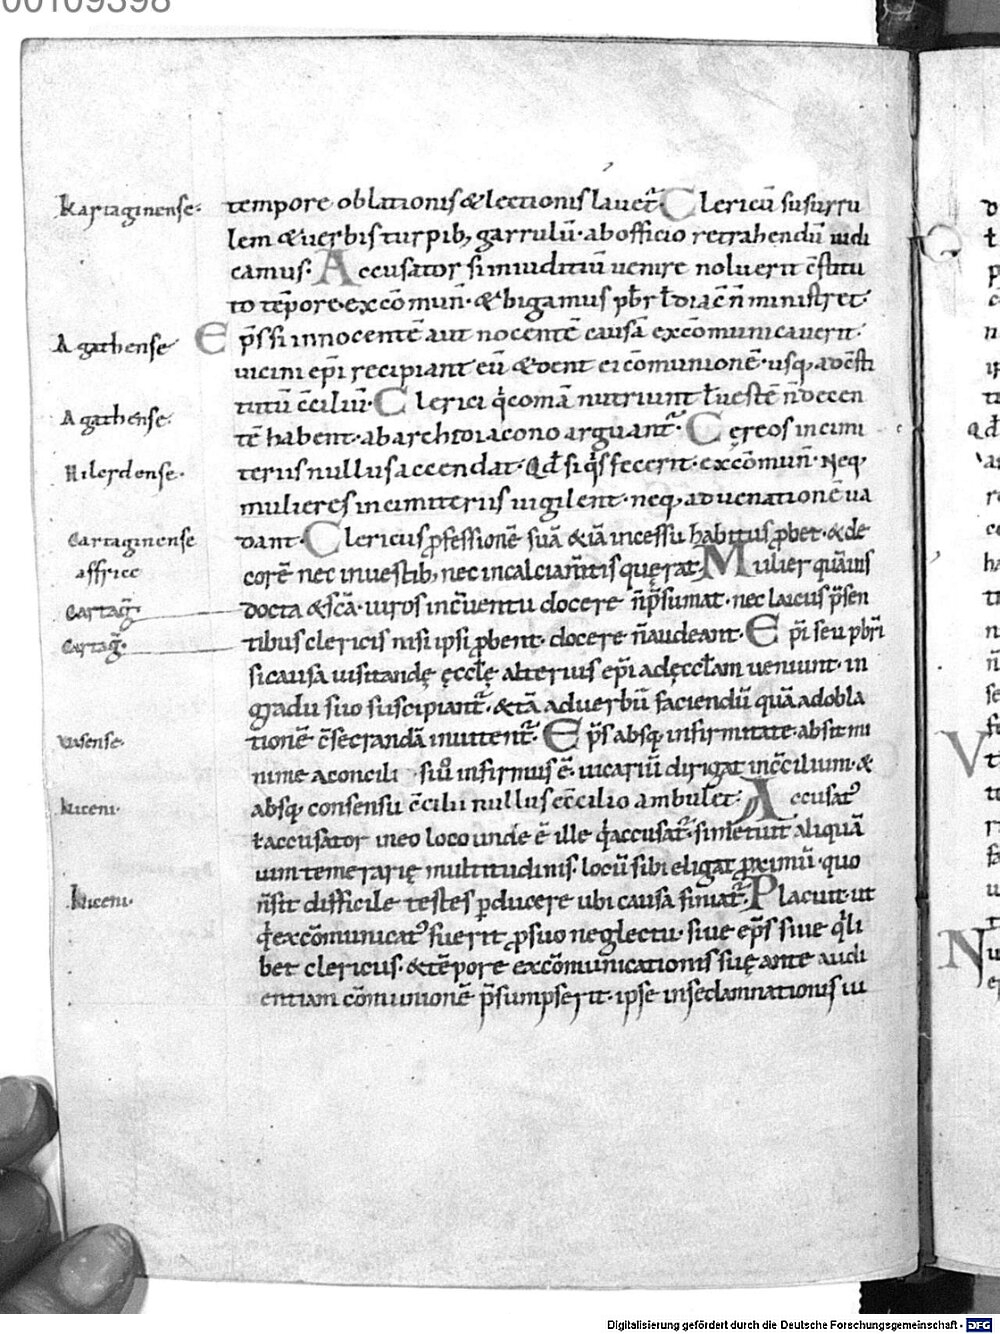 00109398
kartaginense· tempore oblationis & lectionis lauet᷑ Clericū susurru
lem & uerbis turpib; garrulū· ab officio retrahendū iudi
camus· Accusator si in iuditiū uenire noluerit c̄stitu
to tēpore· excōmun̄· & bigamus pbr̄ ł diac̄ n̄ ministret·
Agathense Ep̄s si innocentē aut nocentē causā excōmunicauerit·
uicini ep̄i recipiant eū & dent ei cōmunionē· usq; ad c̄sti
Agathense· tutū c̄ciliū· Clerici q̇ comā nutriunt ł uestē n̄ decen
tē habent· ab archidiacono arguant᷑· Cereos in cimi
Hilerdense· teriis nullus accendat· Qd̄ si q̇s fecerit· excōmun̄· Neq;
mulieres in cimiteriis uigilent· neq; ad uenationē ua
Cartaginense dant· Clericus ꝓfessionē suā & iā incessu habitus ꝓbet· & de
affrice corē nec in uestib; nec in calciam̄tis quęrat· Mulier quāuis
Cartag̅· docta & sc̄a· uiros in c̄uentu docere n̄ p̄sumat· nec laicus p̄sen
Cartag̅· tibus clericis nisi ipsi ꝓbent· docere n̄ audeant· Ep̄i seu pbr̄i
si causa uisitandę ęccłę alterius ep̄i ad ęccłam ueniunt· in
gradu suo suscipiant᷑· & tā ad uerbū faciendū quā ad obla
uasense· tionē c̄secrandā inuitent᷑· Ep̄s absq; infirmitate· absit mi
nime a concili si u͞o infirmus ē· uicariū dirigat in c̄cilium· &
Niceni· absq; consensu c̄cilii nullus e c̄cilio ambulet· Accusat᷑
ł accusator in eo loco unde ē ille q̇ accusat᷑· si metuit aliquā
uim temerarię multitudinis· locū sibi eligat ꝓximū· quo
Niceni· n̄ sit difficile testes ꝑducere ubi causa finiat᷑· Placuit· ut
q̇ excōmunicat᷑ fuerit ꝓ suo neglectu· siue ep̄s siue q̇li
bet clericus· & tēpore excōmunicationis suę ante audi
entiam cōmunionē p̄sumpserit· ipse in se damnationis iu
Digitalisierung gefördert durch die Deutsche Forschungsgemeinschaft · DFG